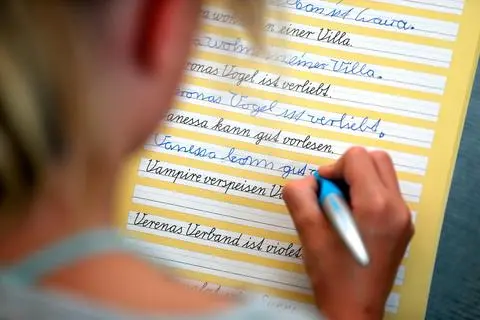 ist
einer Villa.
Villa.
ronas Vogel ist verliebt.
ronas Vogel ist verliebt.
anessa kann gut vorlesen.
Vanessa kann gut
Vampire verspeisen
Verenas Verband ist violet